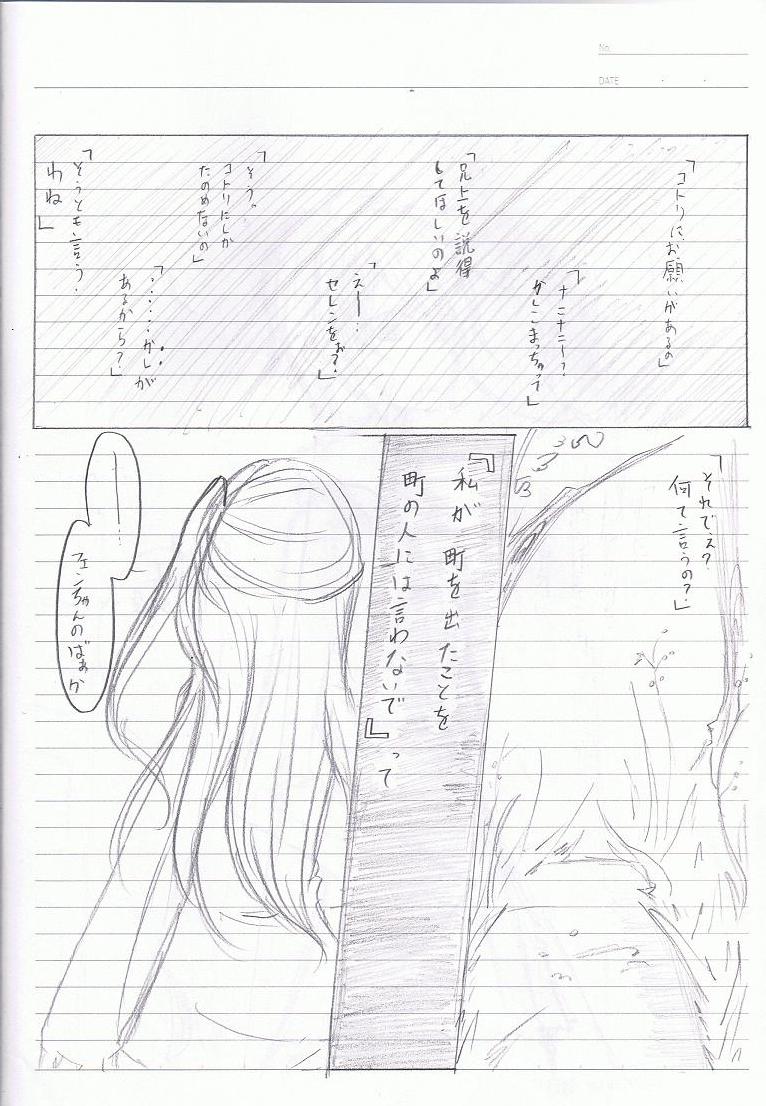 No.
DATE
「コトリにお願いがあるの」
「ナニナニー?
かしこまっちゃって」
「兄上を説得
してほしいのよ」
「えー…
セレンをぉ?」
「そう。
コトリにしか
たのめないの」
「……かしが
あるから?」
「そうとも言う
わね」
「それでぇ?
何て言うの?」
『私が町を出たことを
町の人には言わないで』って
―…
フェンちゃんのばぁか